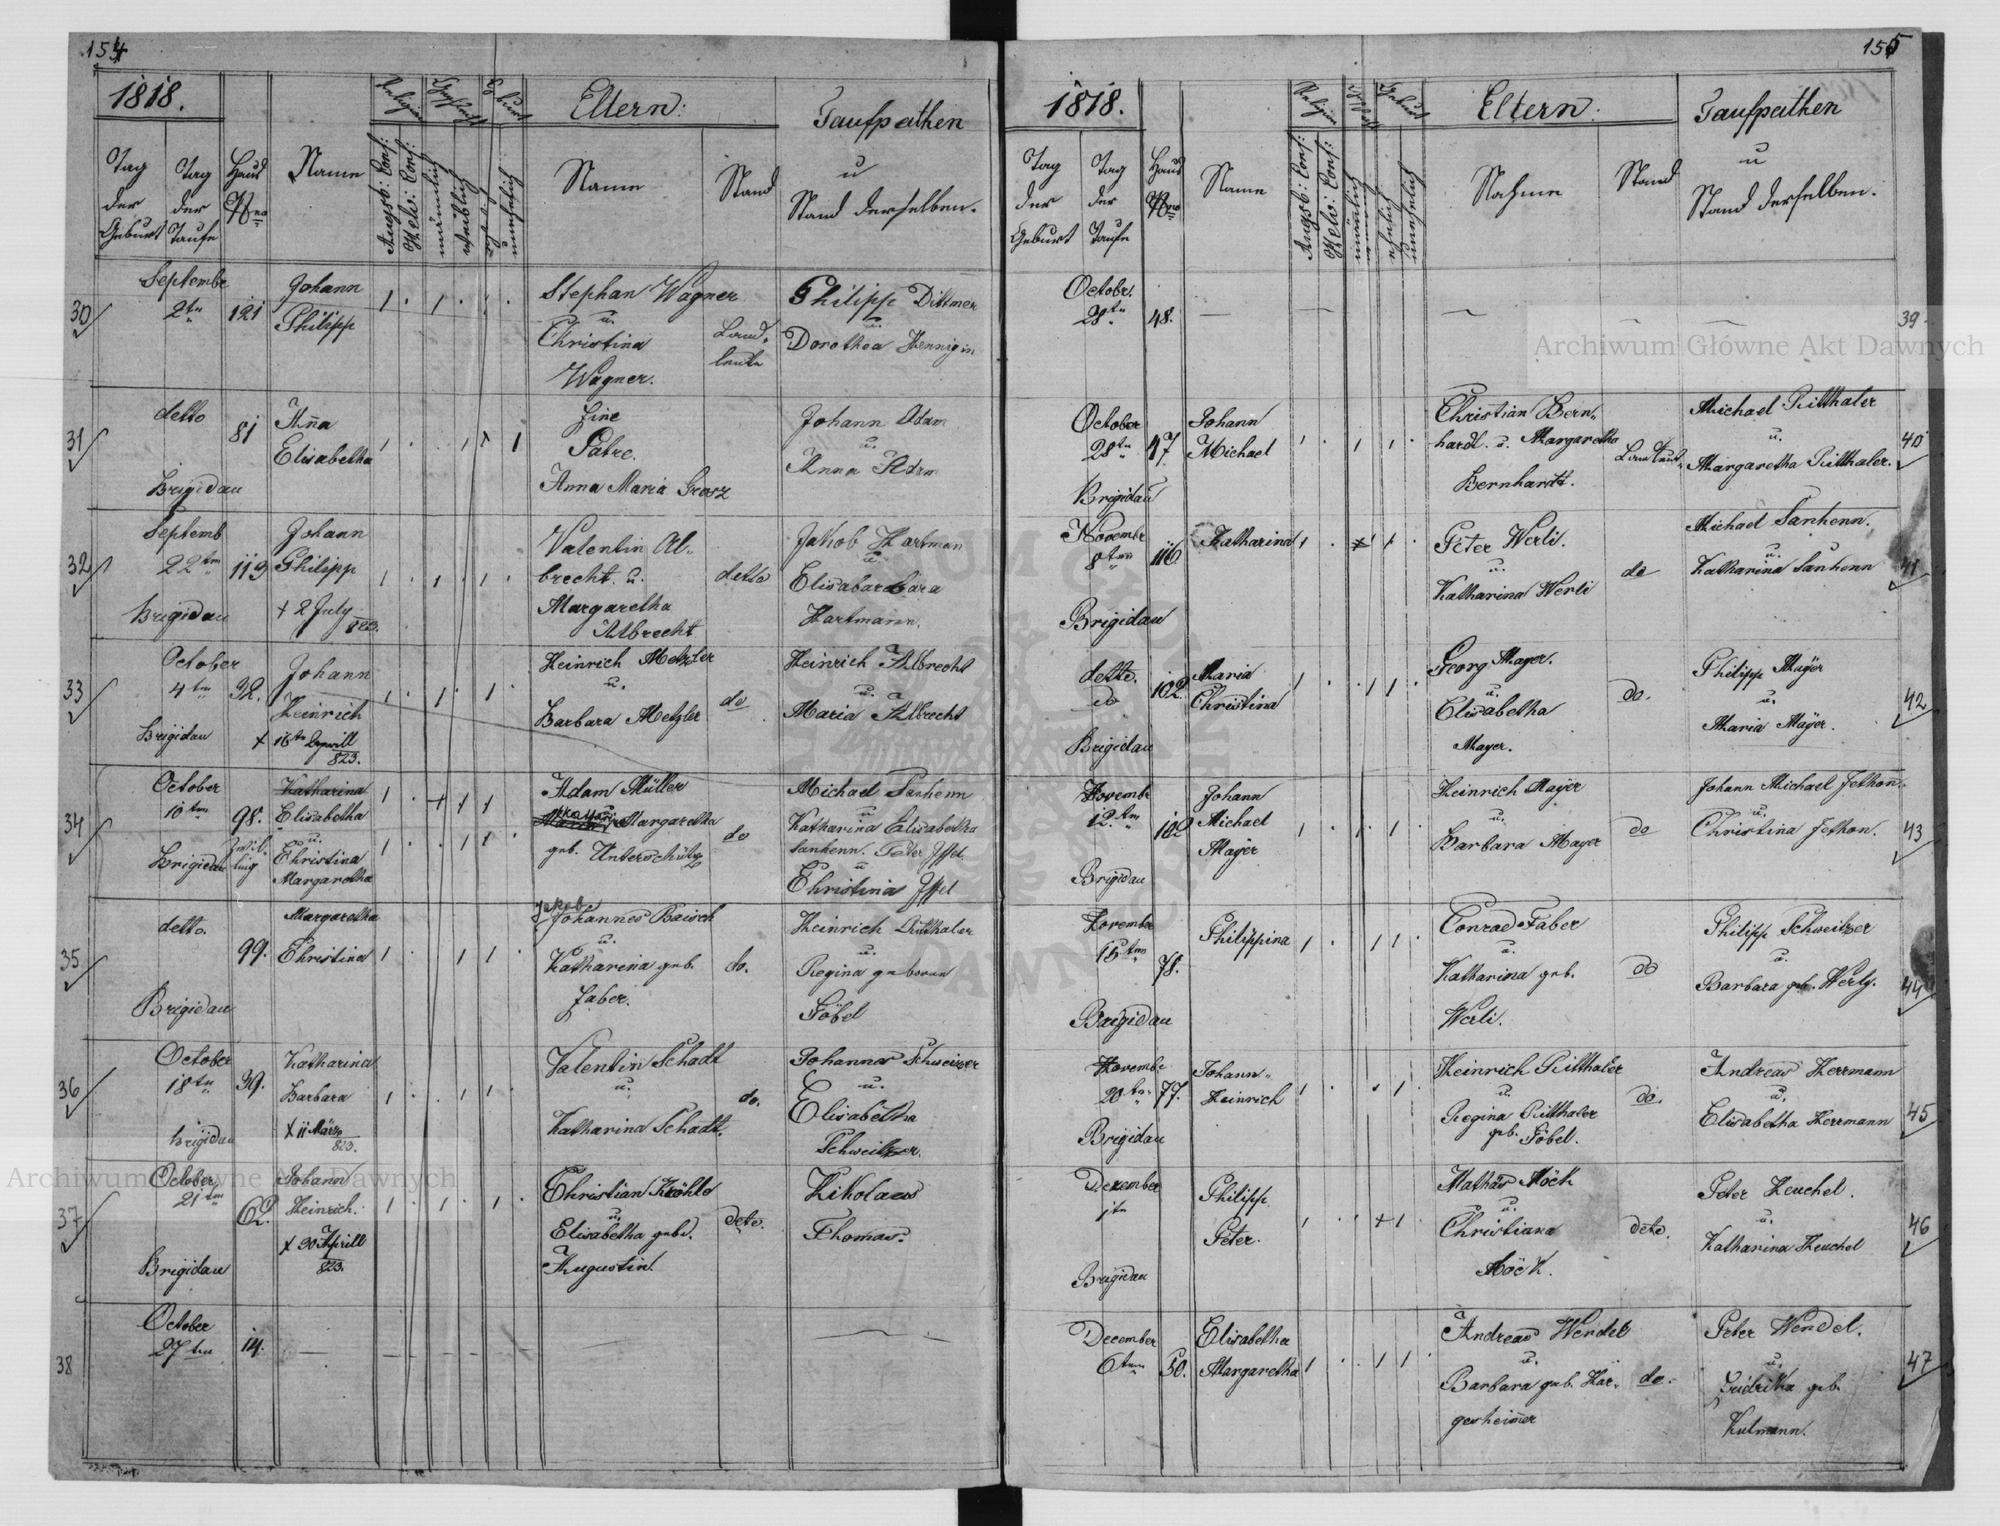 154
1818.
Religion
Geschlecht
Geburt
Eltern:
Taufpathen
u
Stand derselben.
Tag
der
Geburt
Tag
der
Taufe
Haus
Nro
Name
Augsb: Conf:
Helv: Conf:
männlich
weiblich
ehelich
unehelich
Name
Stand
30
September
2tn
121
Johann
Philipp
Stephan Wagner
u.
Christina
Wagner.
Land-
leute
Philipp Dittmer
u.
Dorothea Hennigin
31
detto
Brigidau
81
Anna
Elisabetha
Sine
Patre.
Anna Maria Grosz
Johann Adam
u.
Anna Adam
32
Septemb
22tn
Brigidau
119
Johann
Philipp
+ 2 July
823.
Valentin Al-
brecht. u.
Margaretha
Albrecht
detto
Jakob Hartman
u.
Elisabarbara
Hartmann.
33
October
4tn
Brigidau
92.
Johann
Heinrich
+ 16tn Apprill
823.
Heinrich Metzler
u.
Barbara Metzler
do
Heinrich Albrecht
u.
Maria Albrecht
34
October
10tn
Brigidau
98.
Zwil-
ling
Katharina
Elisabetha
u.
Christina
Margaretha
Adam Müller
u
Margaretha
geb. Unterschütz
do
Michael Sanhenn
u
Katharina Elisabetha
Sanhenn. Peter Iffel
u
Christina Iffel
35
detto.
Brigidau
99.
Margaretha
Christina
Jakob
Johannes Baisch
u.
Katharina geb.
Faber.
do.
Heinrich Ritthaler
u.
Regina geborene
Göbel
36
October
18tn
Brigidau
39.
Katharina
Barbara
+ 11 März
823.
Valentin Schadt
u.
Katharina Schadt.
do.
Johannes Schweitzer
u.
Elisabetha
Schweitzer.
37
October
21tn
Brigidau
62.
Johann
Heinrich.
+ 30 Aprill
823.
Christian Kröhle
u.
Elisabetha gebd.
Augustin.
deto.
Nikolaus
Thomas.
38
October
27tn
14.
155
1818.
Religion
Geburt
Eltern:
Taufpathen
u
Stand derselben.
Tag
der
Geburt
Tag
der
Taufe
Haus
Nro
Name
Augsb: Conf:
Helv: Conf:
männlich
ehelich
unehelich
Nahme
Stand
Octobr.
28tn
48.
39
October
28tn
Brigidau
47
Johann
Michael
Christian Bern-
hardt. u. Margaretha
Bernhardt.
Landleut.
Michael Ritthaler
u.
Margaretha Ritthaler.
40
Novembr
8ten
Brigidau
116
Katharina
Peter Werli.
u.
Katharina Werli
do
Michael Sanhenn.
u.
Katharina Sanhenn
41
detto.
do
Brigidau
102.
Maria
Christina
Georg Mayer.
u.
Elisabetha
Mayer.
do.
Philipp Mayer
u.
Maria Mayer.
42
Novembr
12.tn
Brigidau
102
Johann
Michael
Mayer
Heinrich Mayer
u.
Barbara Mayer
do
Johann Michael Jethon.
u.
Christina Jethon.
43
November
15ten
Brigidau
78.
Philippina
Conrad Faber
u.
Katharina geb.
Werli.
do
Philipp Schweitzer
u.
Barbara geb. Werly.
44
Novembr
20tn.
Brigidau
77.
Johann
Heinrich
Heinrich Ritthaler
u.
Regina Ritthaler
geb. Göbel.
do.
Andreas Herrmann
u.
Elisabetha Herrmann
45
December
1tn
Brigidau
Philipp
Peter.
Mathäs Möck
u.
Christiana
Möck.
deto.
Peter Heuchel.
u.
Katharina Heuchel
46
December
6ten
50.
Elisabetha
Margaretha
Andreas Wendel
u.
Barbara geb. Har-
gesheimer
do.
Peter Wendel.
u.
geb.
Kulmann.
47
Archiwum Główne Akt Dawnych
Archiwum Główne Akt Dawnych